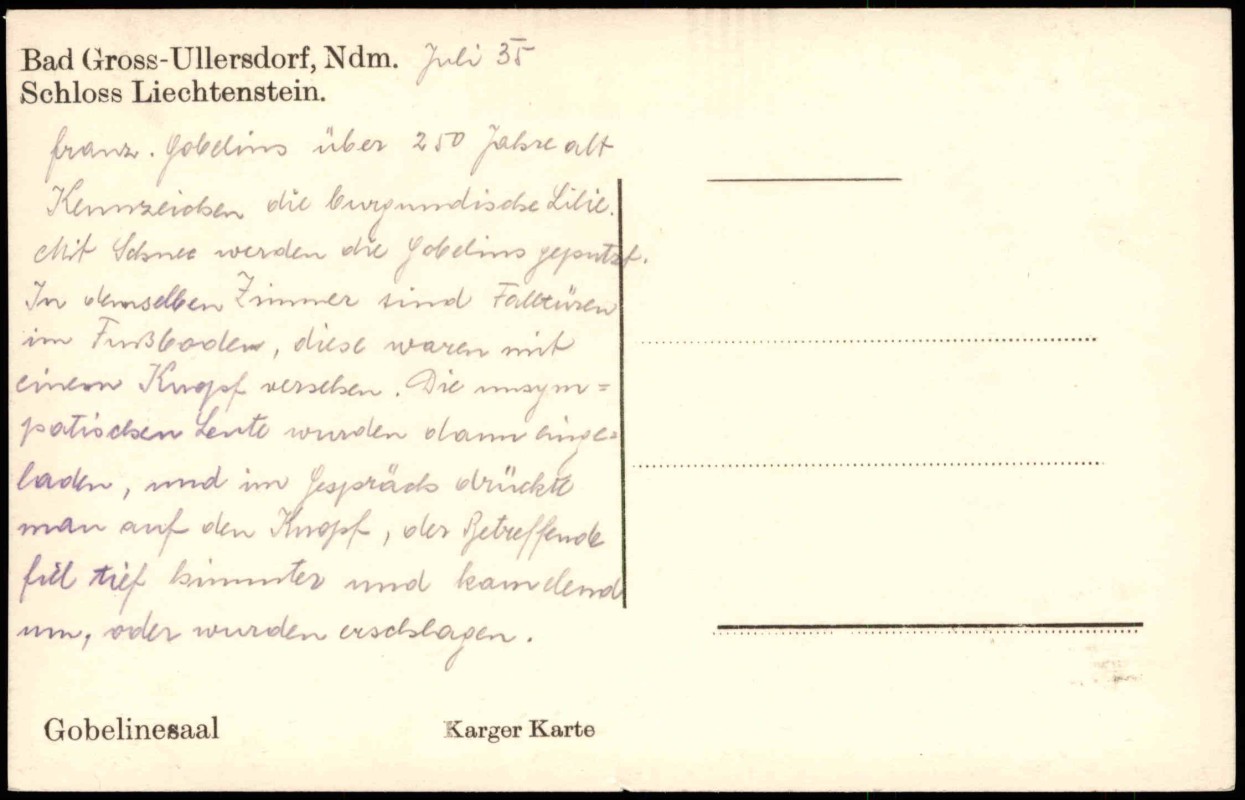 Bad Gross-Ullersdorf, Ndm. Juli 35
Schloss Liechtenstein.
franz. Gobelins über 250 Jahre alt
Kennzeichen die burgundische Lilie.
Mit Schnee werden die Gobelins geputzt.
In demselben Zimmer sind Falltüren
im Fußboden, diese waren mit
einem Knopf versehen. Die unsym=
patischen Leute wurden dann einge=
laden, und im Gespräch drückte
man auf den Knopf, der Betreffende
fiel tief hinunter und kam elend
um, oder wurden erschlagen.
Gobelinesaal
Karger Karte